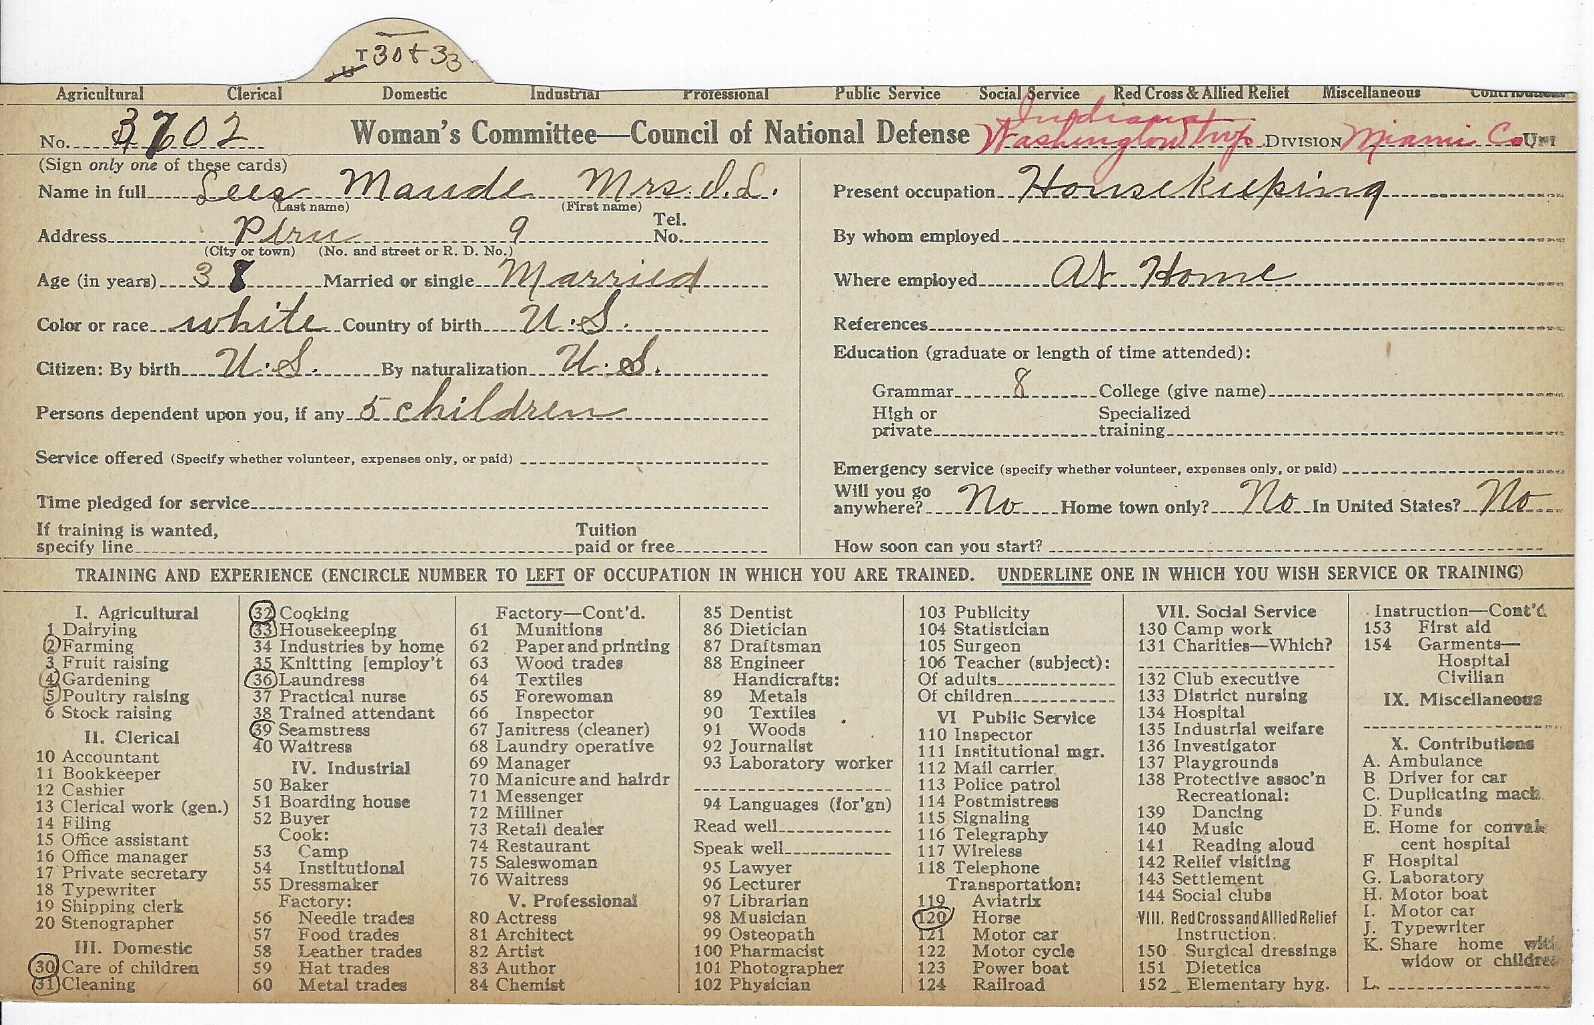 T 30 + 33
Agricultural Clerical Domestic Industrial Professional Public Service Social Service Red Cross & Allied Relief Miscellaneous Contributions
No. 3702 Woman's Committee—Council of National Defense Indiana Washington twp. DIVISION Miami Co. Unit
(Sign only one of these cards)
Name in full Lees Maude Mrs. O. L.
(Last name) (First name)
Address Peru 9 Tel. No.
(City or town) (No. and street or R. D. No.)
Age (in years) 38 Married or single Married
Color or race white Country of birth U.S.
Citizen: By birth U.S. By naturalization U.S.
Persons dependent upon you, if any 5 children
Service offered (Specify whether volunteer, expenses only, or paid)
Time pledged for service
If training is wanted, specify line Tuition paid or free
Present occupation Housekeeping
By whom employed
Where employed At Home
References
Education (graduate or length of time attended):
Grammar 8 College (give name)
High or private Specialized training
Emergency service (specify whether volunteer, expenses only, or paid)
Will you go anywhere? No Home town only? No In United States? No
How soon can you start?
TRAINING AND EXPERIENCE (ENCIRCLE NUMBER TO LEFT OF OCCUPATION IN WHICH YOU ARE TRAINED. UNDERLINE ONE IN WHICH YOU WISH SERVICE OR TRAINING)
I. Agricultural
1 Dairying
2 Farming
3 Fruit raising
4 Gardening
5 Poultry raising
6 Stock raising
II. Clerical
10 Accountant
11 Bookkeeper
12 Cashier
13 Clerical work (gen.)
14 Filing
15 Office assistant
16 Office manager
17 Private secretary
18 Typewriter
19 Shipping clerk
20 Stenographer
III. Domestic
30 Care of children
31 Cleaning
32 Cooking
33 Housekeeping
34 Industries by home
35 Knitting [employ't
36 Laundress
37 Practical nurse
38 Trained attendant
39 Seamstress
40 Waitress
IV. Industrial
50 Baker
51 Boarding house
52 Buyer
Cook:
53 Camp
54 Institutional
55 Dressmaker
Factory:
56 Needle trades
57 Food trades
58 Leather trades
59 Hat trades
60 Metal trades
Factory—Cont'd.
61 Munitions
62 Paper and printing
63 Wood trades
64 Textiles
65 Forewoman
66 Inspector
67 Janitress (cleaner)
68 Laundry operative
69 Manager
70 Manicure and hairdr
71 Messenger
72 Milliner
73 Retail dealer
74 Restaurant
75 Saleswoman
76 Waitress
V. Professional
80 Actress
81 Architect
82 Artist
83 Author
84 Chemist
85 Dentist
86 Dietician
87 Draftsman
88 Engineer
Handicrafts:
89 Metals
90 Textiles
91 Woods
92 Journalist
93 Laboratory worker
94 Languages (for'gn)
Read well
Speak well
95 Lawyer
96 Lecturer
97 Librarian
98 Musician
99 Osteopath
100 Pharmacist
101 Photographer
102 Physician
103 Publicity
104 Statistician
105 Surgeon
106 Teacher (subject):
Of adults
Of children
VI Public Service
110 Inspector
111 Institutional mgr.
112 Mail carrier
113 Police patrol
114 Postmistress
115 Signaling
116 Telegraphy
117 Wireless
118 Telephone
Transportation:
119 Aviatrix
120 Horse
121 Motor car
122 Motor cycle
123 Power boat
124 Railroad
VII. Social Service
130 Camp work
131 Charities—Which?
132 Club executive
133 District nursing
134 Hospital
135 Industrial welfare
136 Investigator
137 Playgrounds
138 Protective assoc'n
Recreational:
139 Dancing
140 Music
141 Reading aloud
142 Relief visiting
143 Settlement
144 Social clubs
VIII. Red Cross and Allied Relief
Instruction.
150 Surgical dressings
151 Dietetics
152 Elementary hyg.
Instruction—Cont'd.
153 First aid
154 Garments—
Hospital
Civilian
IX. Miscellaneous
X. Contributions
A. Ambulance
B Driver for car
C. Duplicating mach.
D. Funds
E. Home for convales
cent hospital
F Hospital
G. Laboratory
H. Motor boat
I. Motor car
J. Typewriter
K. Share home with
widow or children
L.